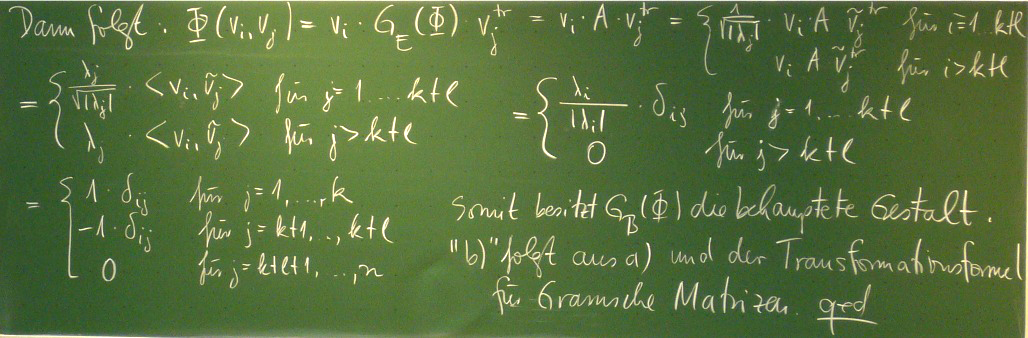 Dann folgt: Φ(v_i, v_j) = v_i · G_E(Φ) · v_j^tr = v_i · A · v_j^tr = { 1/√|λ_j| · v_i A ṽ_j^tr für i=1...k+l
v_i A ṽ_j^tr für i>k+l
= { λ_j/√|λ_j| · <v_i, ṽ_j> für j=1...k+l
λ_j · <v_i, ṽ_j> für j>k+l
= { λ_i/|λ_i| · δ_ij für j=1,...k+l
0 für j>k+l
= { 1 · δ_ij für j=1,...,k
-1 · δ_ij für j=k+1,..,k+l
0 für j=k+l+1,...,n
Somit besitzt G_B(Φ) die behauptete Gestalt.
"b)" folgt aus a) und der Transformationsformel
für Gramsche Matrizen. qed